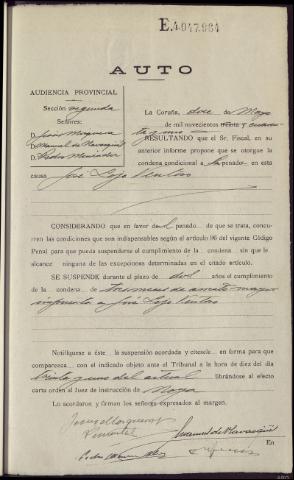 E.4.047.984
AUTO
AUDIENCIA PROVINCIAL
Sección segunda
Señores:
D. Jesús Marquina
D. Manuel de
D. Pedro
La Coruña, doce de Mayo
de mil novecientos treinta y cuaren-
ta y uno
RESULTANDO que el Sr. Fiscal, en su
anterior informe propone que se otorgue la
condena condicional a penado en esta
causa José
CONSIDERANDO que en favor del penado de que se trata, concu-
rren las condiciones que son indispensables según el artículo 96 del vigente Código
Penal para que pueda suspenderse el cumplimiento de la condena sin que le
alcance ninguna de las excepciones determinadas en el citado artículo.
SE SUSPENDE durante el plazo de dos años el cumplimiento
de la condena de tres meses de arresto mayor
impuesta a José
Notifíquese a éste la suspensión acordada y cítesele en forma para que
comparezca con el indicado objeto ante el Tribunal a la hora de diez del día
treinta y uno del actual librándose al efecto
carta orden al Juez de instrucción de Noya
Lo acordaron y firman los señores expresados al margen.
En